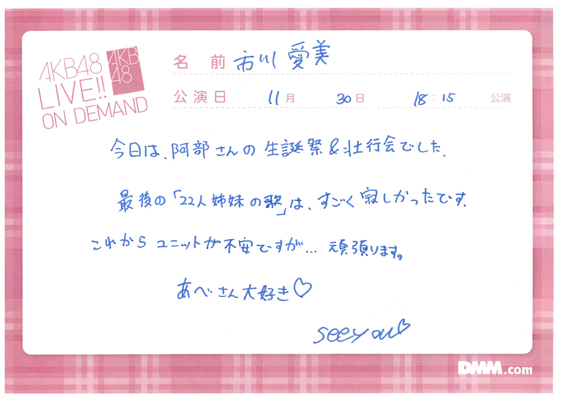 AKB48
LIVE!!
ON DEMAND
AKB
48
名前 市川愛美
公演日 11月 30日 18:15 公演
今日は、阿部さんの生誕祭&壮行会でした.
最後の「22人姉妹の歌」は、すごく寂しかったです.
これからユニットが不安ですが... 頑張ります。
あべさん大好き♡
see you♡
DMM.com